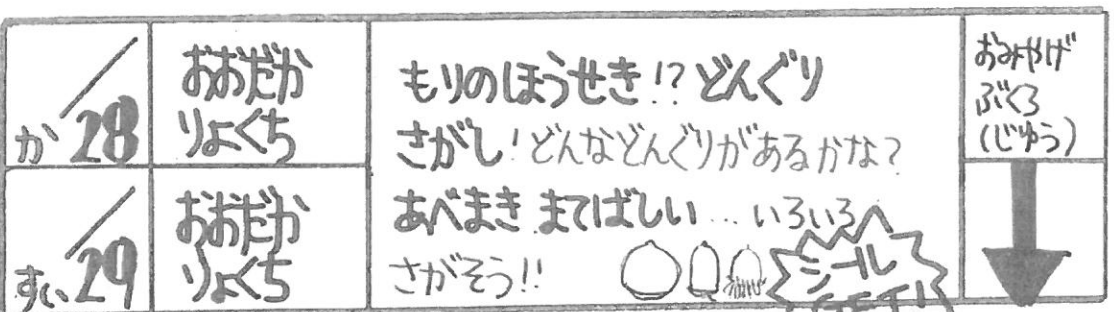 /28 か
おおだか
りょくち
もりのほうせき!? どんぐり
さがし! どんなどんぐりがあるかな?
あべまき まてばしい … いろいろ
さがそう!!
シール
おみやげ
ぶくろ
(じゆう)
/29 すい
おおだか
りょくち